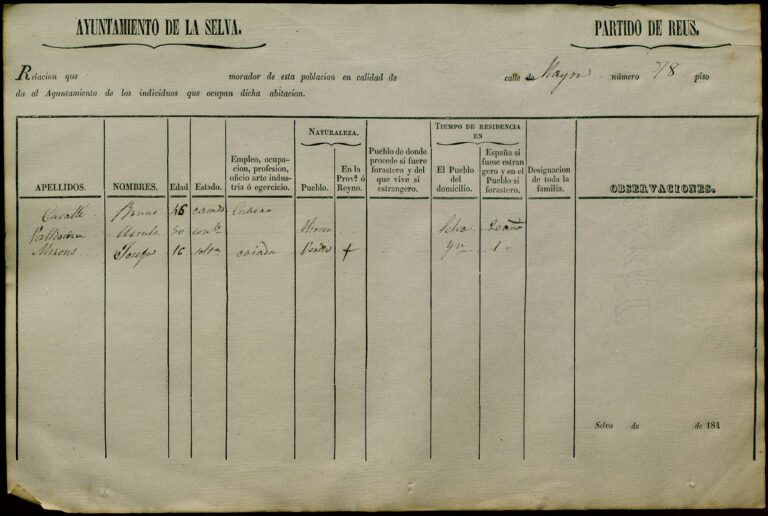 AYUNTAMIENTO DE LA SELVA.
PARTIDO DE REUS.
Relacion que morador de esta poblacion en calidad de calle de Mayor número 78 piso
da al Ayuntamiento de los individuos que ocupan dicha abitacion.
APELLIDOS.
NOMBRES.
Edad
Estado.
Empleo, ocupa-
cion, profesion,
oficio arte indus-
tria ó egercicio.
NATURALEZA.
Pueblo.
En la
Prov.ª ó
Reyno.
Pueblo de donde
procede si fuere
forastero y del
que vive si
estrangero.
TIEMPO DE RESIDENCIA
EN
El Pueblo
del
domicilio.
España si
fuese estran
gero y en el
Pueblo si
forastero.
Designacion
de toda la
familia.
OBSERVACIONES.
Cavallé Bruno 46 casado
Ursula Selva
Josefa 16 solta criada + 1
Selva de de 184